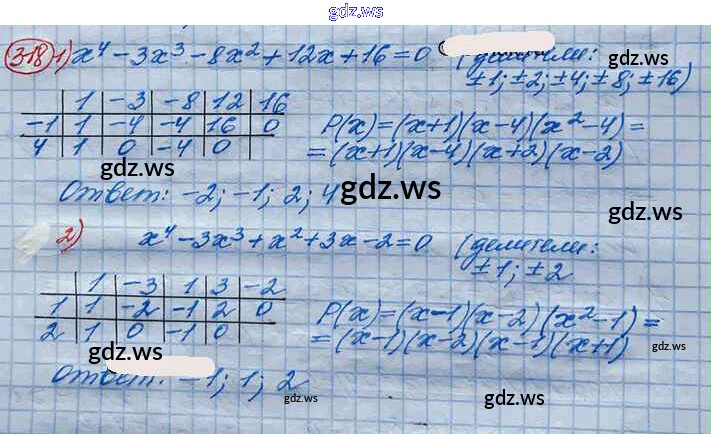 gdz.ws
318 1) x⁴ - 3x³ - 8x² + 12x + 16 = 0 (делители:
±1; ±2; ±4; ±8; ±16)
gdz.ws
1 -3 -8 12 16
-1 1 -4 -4 16 0 P(x)=(x+1)(x-4)(x²-4)=
4 1 0 -4 0 =(x+1)(x-4)(x+2)(x-2)
gdz.ws
Ответ: -2; -1; 2; 4
gdz.ws
gdz.ws
2) x⁴ - 3x³ + x² + 3x - 2 = 0 (делители:
±1; ±2
gdz.ws
1 -3 1 3 -2
1 1 -2 -1 2 0 P(x)=(x-1)(x-2)(x²-1)=
2 1 0 -1 0 =(x-1)(x-2)(x-1)(x+1)
gdz.ws
gdz.ws
Ответ: -1; 1; 2
gdz.ws
gdz.ws